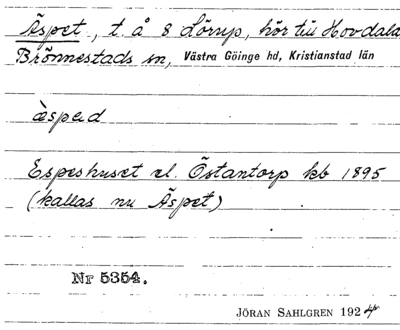 Äspet, t. å 8 Lörup, hör till Hovdala
Brönnestads sn, Västra Göinge hd, Kristianstad län
æspəd
Espeshuset el. Östantorp kb 1895
(kallas nu Äspet)
Nr 5354.
JÖRAN SAHLGREN 1924